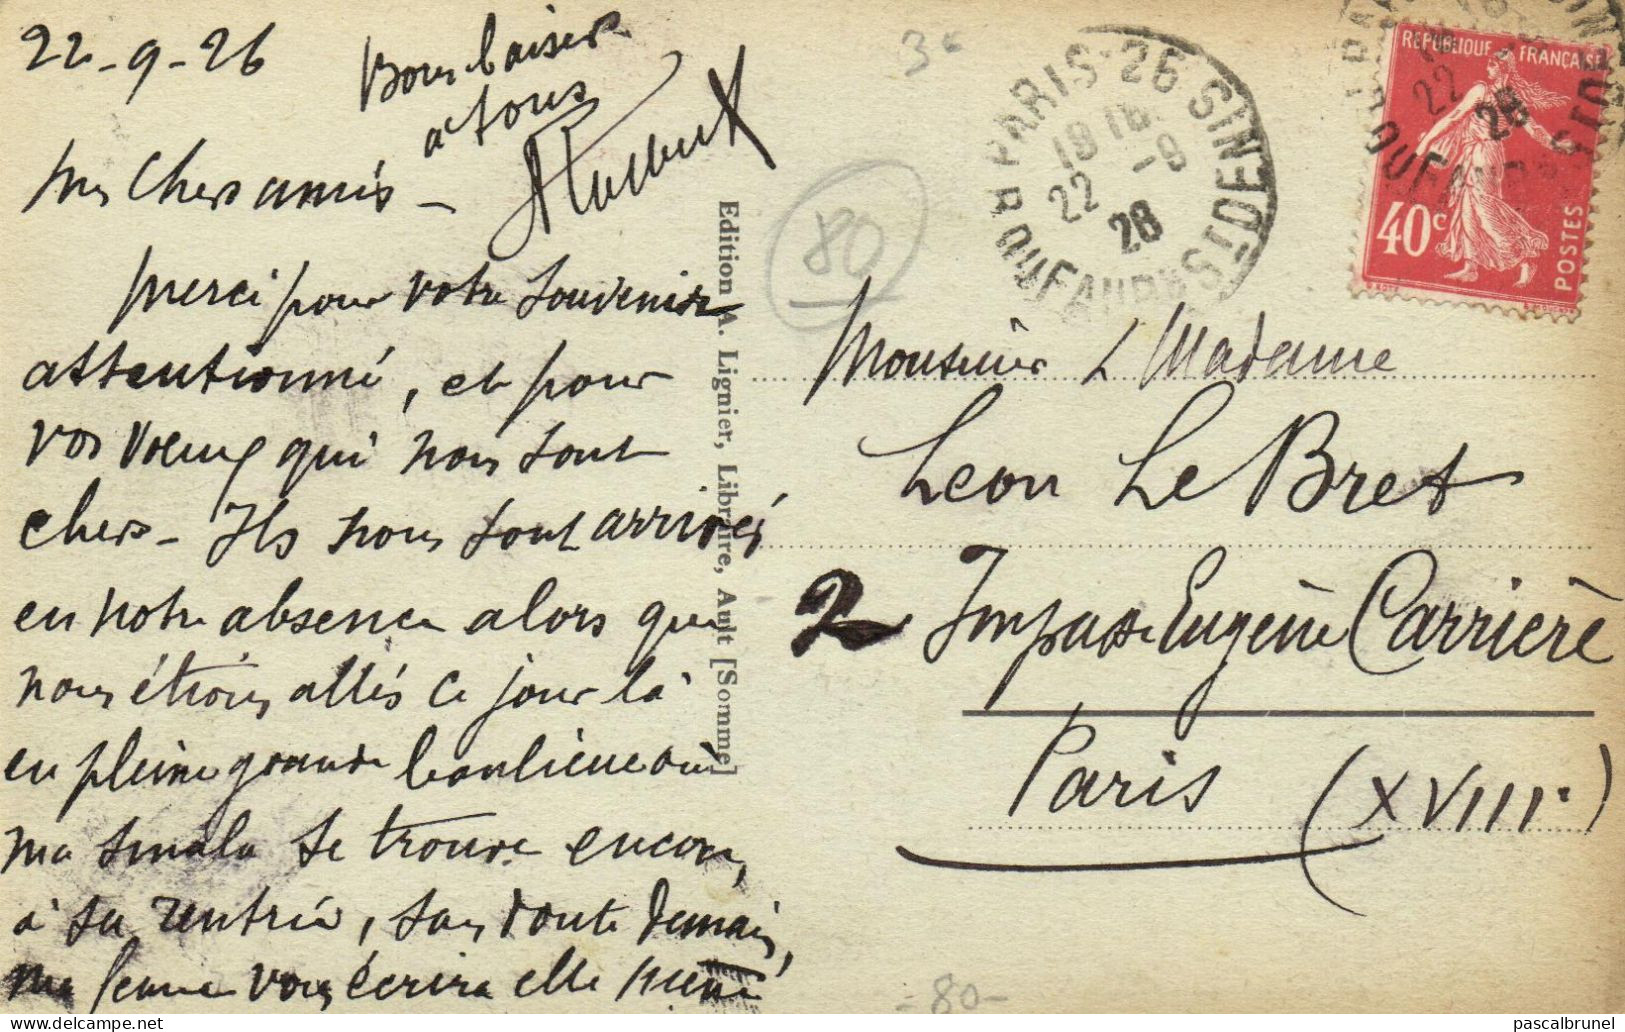 22-9-26
Bons baisers
à tous
Mes Chers amis -
Merci pour votre souvenir
attentionné, et pour
vos vœux qui nous sont
chers - Ils nous sont arrivés
en notre absence alors que
nous étions allés ce jour là
en pleine grande banlieue où
ma smala se trouve encore,
à sa rentrée, sans doute demain,
ma femme vous écrira elle même
Edition A. Lignier, Libraire, Ault [Somme]
3€
80
PARIS 26
22 -9
26
REPUBLIQUE FRANÇAISE
40c
POSTES
Monsieur & Madame
Leon Le Bret
2 Impasse Eugène Carrière
Paris (XVIIIe)
-80-
pascalbrunel